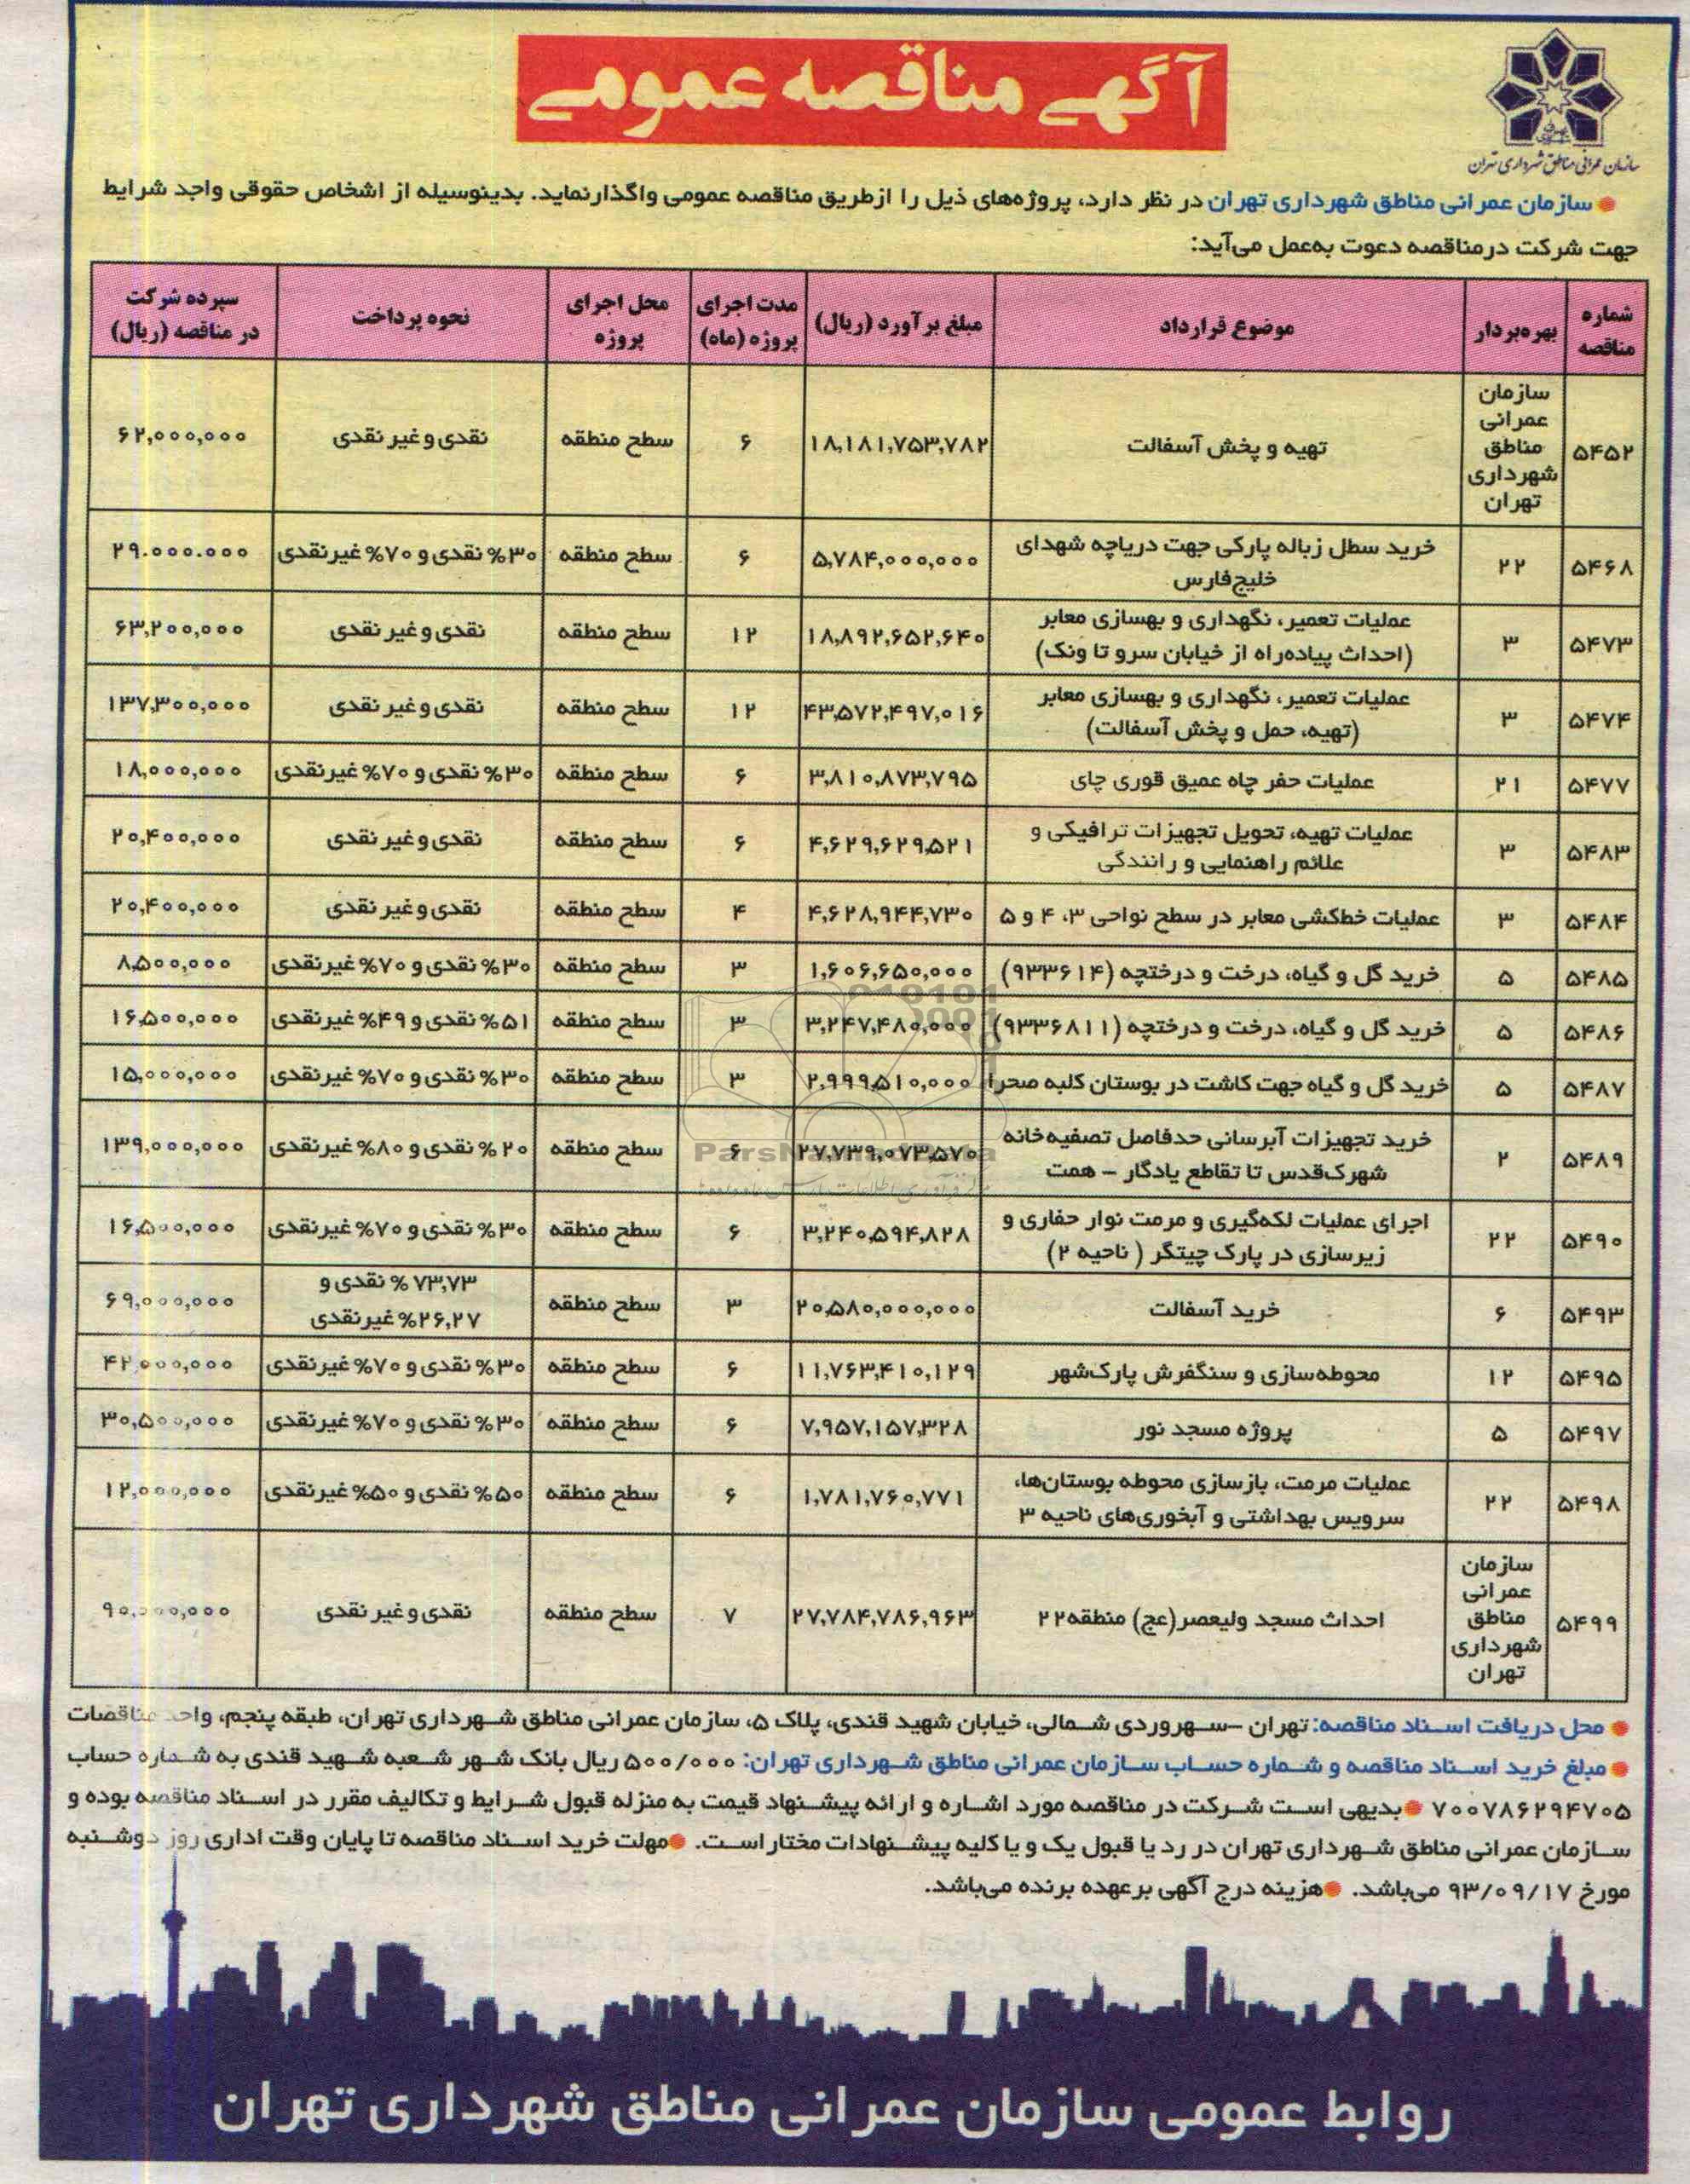 آگهی مناقصه عمومی
سازمان عمرانی مناطق شهرداری تهران
سازمان عمرانی مناطق شهرداری تهران در نظر دارد، پروژه‌های ذیل را ازطریق مناقصه عمومی واگذارنماید. بدینوسیله از اشخاص حقوقی واجد شرایط
جهت شرکت درمناقصه دعوت به‌عمل می‌آید:
شماره مناقصه | بهره‌بردار | موضوع قرارداد | مبلغ برآورد (ریال) | مدت اجرای پروژه (ماه) | محل اجرای پروژه | نحوه پرداخت | سپرده شرکت در مناقصه (ریال)
۵۴۵۲ | سازمان عمرانی مناطق شهرداری تهران | تهیه و پخش آسفالت | ۱۸,۱۸۱,۷۵۳,۷۸۲ | ۶ | سطح منطقه | نقدی و غیر نقدی | ۶۲,۰۰۰,۰۰۰
۵۴۶۸ | ۲۲ | خرید سطل زباله پارکی جهت دریاچه شهدای خلیج‌فارس | ۵,۷۸۴,۰۰۰,۰۰۰ | ۶ | سطح منطقه | ۳۰% نقدی و ۷۰% غیرنقدی | ۲۹.۰۰۰.۰۰۰
۵۴۷۳ | ۳ | عملیات تعمیر، نگهداری و بهسازی معابر (احداث پیاده‌راه از خیابان سرو تا ونک) | ۱۸,۸۹۲,۶۵۲,۶۴۰ | ۱۲ | سطح منطقه | نقدی و غیر نقدی | ۶۳,۲۰۰,۰۰۰
۵۴۷۴ | ۳ | عملیات تعمیر، نگهداری و بهسازی معابر (تهیه، حمل و پخش آسفالت) | ۴۳,۵۷۲,۴۹۷,۰۱۶ | ۱۲ | سطح منطقه | نقدی و غیر نقدی | ۱۳۷,۳۰۰,۰۰۰
۵۴۷۷ | ۲۱ | عملیات حفر چاه عمیق قوری چای | ۳,۸۱۰,۸۷۳,۷۹۵ | ۶ | سطح منطقه | ۳۰% نقدی و ۷۰% غیرنقدی | ۱۸,۰۰۰,۰۰۰
۵۴۸۳ | ۳ | عملیات تهیه، تحویل تجهیزات ترافیکی و علائم راهنمایی و رانندگی | ۴,۶۲۹,۶۲۹,۵۲۱ | ۶ | سطح منطقه | نقدی و غیر نقدی | ۲۰,۴۰۰,۰۰۰
۵۴۸۴ | ۳ | عملیات خطکشی معابر در سطح نواحی ۳، ۴ و ۵ | ۴,۶۲۸,۹۴۴,۷۳۰ | ۴ | سطح منطقه | نقدی و غیر نقدی | ۲۰,۴۰۰,۰۰۰
۵۴۸۵ | ۵ | خرید گل و گیاه، درخت و درختچه (۹۳۳۶۱۴) | ۱,۶۰۶,۶۵۰,۰۰۰ | ۳ | سطح منطقه | ۳۰% نقدی و ۷۰% غیرنقدی | ۸,۵۰۰,۰۰۰
۵۴۸۶ | ۵ | خرید گل و گیاه، درخت و درختچه (۹۳۳۶۸۱۱) | ۳,۲۴۷,۴۸۰,۰۰۰ | ۳ | سطح منطقه | ۵۱% نقدی و ۴۹% غیرنقدی | ۱۶,۵۰۰,۰۰۰
۵۴۸۷ | ۵ | خرید گل و گیاه جهت کاشت در بوستان کلبه صحرا | ۲,۹۹۹,۵۱۰,۰۰۰ | ۳ | سطح منطقه | ۳۰% نقدی و ۷۰% غیرنقدی | ۱۵,۰۰۰,۰۰۰
۵۴۸۹ | ۲ | خرید تجهیزات آبرسانی حدفاصل تصفیه‌خانه شهرک‌قدس تا تقاطع یادگار – همت | ۲۷,۷۳۹,۰۷۳,۵۷۰ | ۶ | سطح منطقه | ۲۰% نقدی و ۸۰% غیرنقدی | ۱۳۹,۰۰۰,۰۰۰
۵۴۹۰ | ۲۲ | اجرای عملیات لکه‌گیری و مرمت نوار حفاری و زیرسازی در پارک چیتگر ( ناحیه ۲) | ۳,۲۴۰,۵۹۴,۸۲۸ | ۶ | سطح منطقه | ۳۰% نقدی و ۷۰% غیرنقدی | ۱۶,۵۰۰,۰۰۰
۵۴۹۳ | ۶ | خرید آسفالت | ۲۰,۵۸۰,۰۰۰,۰۰۰ | ۳ | سطح منطقه | ۷۳,۷۳ % نقدی و ۲۶,۲۷% غیرنقدی | ۶۹,۰۰۰,۰۰۰
۵۴۹۵ | ۱۲ | محوطه‌سازی و سنگفرش پارک‌شهر | ۱۱,۷۶۳,۴۱۰,۱۲۹ | ۶ | سطح منطقه | ۳۰% نقدی و ۷۰% غیرنقدی | ۴۲,۰۰۰,۰۰۰
۵۴۹۷ | ۵ | پروژه مسجد نور | ۷,۹۵۷,۱۵۷,۳۲۸ | ۶ | سطح منطقه | ۳۰% نقدی و ۷۰% غیرنقدی | ۳۰,۵۰۰,۰۰۰
۵۴۹۸ | ۲۲ | عملیات مرمت، بازسازی محوطه بوستان‌ها، سرویس بهداشتی و آبخوری‌های ناحیه ۳ | ۱,۷۸۱,۷۶۰,۷۷۱ | ۶ | سطح منطقه | ۵۰% نقدی و ۵۰% غیرنقدی | ۱۲,۰۰۰,۰۰۰
۵۴۹۹ | سازمان عمرانی مناطق شهرداری تهران | احداث مسجد ولیعصر(عج) منطقه۲۲ | ۲۷,۷۸۴,۷۸۶,۹۶۳ | ۷ | سطح منطقه | نقدی و غیر نقدی | ۹۰,۰۰۰,۰۰۰
محل دریافت اسناد مناقصه: تهران –سهروردی شمالی، خیابان شهید قندی، پلاک ۵، سازمان عمرانی مناطق شهرداری تهران، طبقه پنجم، واحد مناقصات
مبلغ خرید اسناد مناقصه و شماره حساب سازمان عمرانی مناطق شهرداری تهران: ۵۰۰/۰۰۰ ریال بانک شهر شعبه شهید قندی به شماره حساب
۷۰۰۷۸۶۲۹۴۷۰۵ بدیهی است شرکت در مناقصه مورد اشاره و ارائه پیشنهاد قیمت به منزله قبول شرایط و تکالیف مقرر در اسناد مناقصه بوده و
سازمان عمرانی مناطق شهرداری تهران در رد یا قبول یک و یا کلیه پیشنهادات مختار است. مهلت خرید اسناد مناقصه تا پایان وقت اداری روز دوشنبه
مورخ ۹۳/۰۹/۱۷ می‌باشد. هزینه درج آگهی برعهده برنده می‌باشد.
روابط عمومی سازمان عمرانی مناطق شهرداری تهران